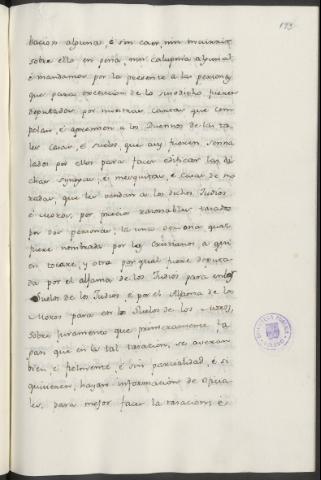 193
bacion alguna, é sin caer, nin incurrir
sobre ello en pena, nin calupnia alguna:
é mandamos por la presente á las personas
que para execucion de lo susodicho fueren
deputadas por nuestras cartas que com
pelan, é apremien á los Duennos de las ta
les casas, é suelos, que asy fueren senna
lados por ellos para facer edificar las di
chas synogas, é mezquitas, é casas de mo
radas, que les vendan á los dichos Judios
é Moros, por precios razonables tasados
por dos personas, la una de ellas qual
fuere nombrada por los Cristianos á quien
en tocare, y otra por qual fuere deputa
da por el alfama de los Judios para en los
Suelos de los Judios, é por el Alfama de los
Moros para en los Suelos de los Moros,
sobre juramento que primeramente fa
gan que en la tal tasacion, se averan
bien é fielmente, é sin parcialidad, é si
quisieren, hayan informacion de Oficia
les, para mejor facer la tasacion: é